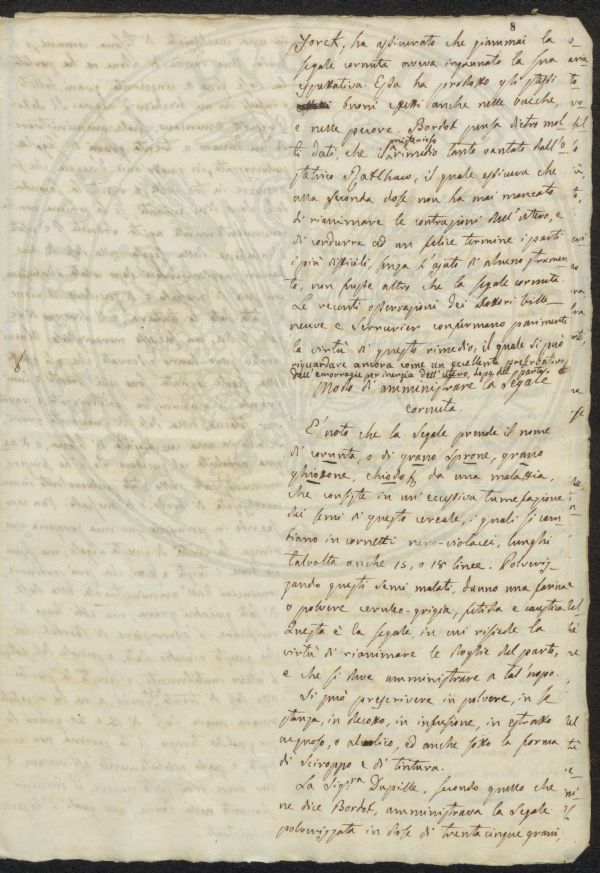 8
Jorck, ha assicurato che giammai la
segale cornuta aveva ingannato la sua
aspettativa. Essa ha prodotto gli stessi
buoni effetti anche nelle vacche,
e nelle pecore. Bordot pensa dietro mol-
ti dati, che il misterioso rimedio tanto vantato dall'o-
stetrico Rathlaw, il quale assicura che
alla seconda dose non ha mai mancato
di rianimare le contrazioni dell'utero, e
di condurre ad un felice termine i parti
i più difficili, senza l'ajuto di alcuno strumen-
to, non fusse altro che la segale cornuta.
Le recenti osservazioni dei dottori Ville-
neuve e Serrurier confermano parimente
la virtù di questo rimedio, il quale si può
riguardare ancora come un eccellente preservativo
dell'emorragie per inerzia dell'utero, dopo del parto.
Modo di amministrare la Segale
cornuta.
È noto che la Segale prende il nome
di cornuta, o di grano sprone, grano
ghiottone, chiodo, da una malattia,
che consiste in un'eccessiva tumefazione
dei semi di questo cereale, i quali si cam-
biano in cornetti nero-violacei, lunghi
talvolta anche 15, o 18 linee. Polveriz-
zando questi semi malati, danno una farina
o polvere ceruleo-grigia, fetida e caustica.
Questa è la segale, in cui risiede la
virtù di rianimare le doglie del parto,
e che si deve amministrare a tal'uopo.
Si può prescrivere in polvere, in so-
stanza, in decotto, in infusione, in estratto
acquoso, o alcolico, ed anche sotto la forma
di sciroppo e di tintura.
La Sig.ra Dupille, secondo quello che
ne dice Bordot, amministrava la segale
polverizzata in dose di trenta cinque grani,